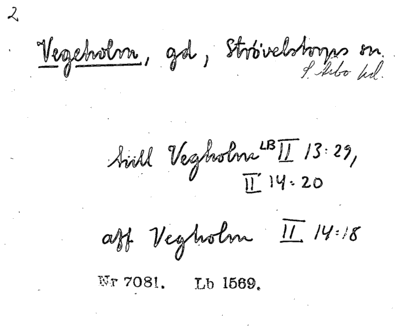 2
Vegeholm, gd, Strövelstorps sn.
S. Åsbo hd.
till Vegholm LB II 13:29,
II 14:20
aff Vegholm II 14:18
Nr 7081. Lb 1569.